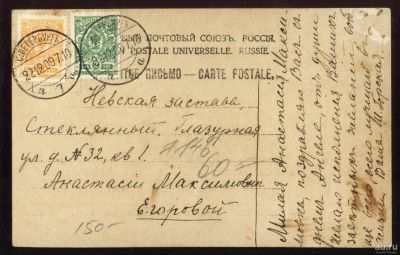 ПОЧТОВЫЙ СОЮЗЪ. РОССІЯ.
POSTALE UNIVERSELLE. RUSSIE.
ПИСЬМО — CARTE POSTALE.
С.ПЕТЕРБУРГЪ
22.12.09.7.10
Невская застава,
Стеклянный. Глазурная
ул. д. №32, кв. 1.
Анастасіи Максимовнѣ
Егоровой
60=
150-
Милая Анастасія Макси
мовна поздравляю Васъ съ
днемъ Ангела, отъ души
желаю исполненія Вашихъ
желаній
Ваша
au.ru